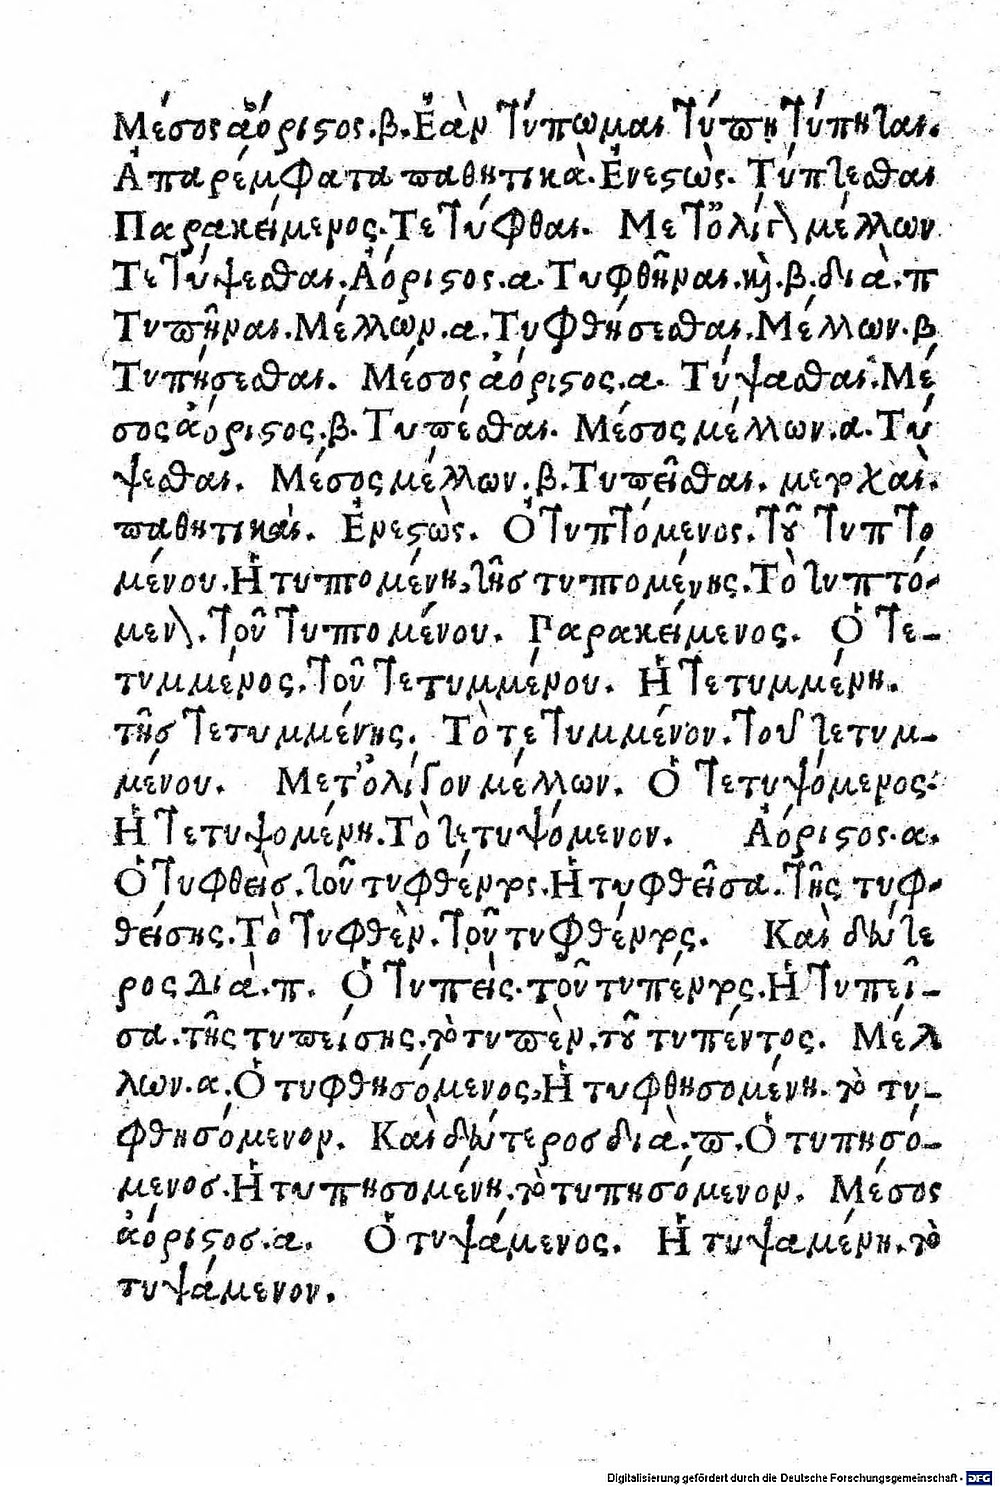 Μέσος ἀόριστος.β.Ἐὰν τύπωμαι τύπῃ τύπηται.
Ἀπαρέμφατα παθητικὰ.Ἐνεστὼς. Τύπτεσθαι
Παρακείμενος.Τετύφθαι. Μετ' ὀλίγον μέλλων
Τετύψεσθαι.Ἀόριστος.α.Τυφθῆναι.καὶ.β.διὰ.π
Τυπῆναι.Μέλλων.α.Τυφθήσεσθαι.Μέλλων.β
Τυπήσεσθαι. Μέσος ἀόριστος.α. Τύψασθαι.Μέ
σος ἀόριστος.β.Τυπέσθαι. Μέσος μέλλων.α.Τύ
ψεσθαι. Μέσος μέλλων.β.Τυπεῖσθαι. μετοχαὶ.
παθητικαί. Ἐνεστὼς. Ὁ τυπτόμενος.τοῦ τυπτο
μένου.Ἡ τυπτομένη,τῆς τυπτομένης.Τὸ τυπτό-
μενον.τοῦ τυπτομένου. Παρακείμενος. Ὁ τε-
τυμμένος.τοῦ τετυμμένου. Ἡ τετυμμένη.
τῆς τετυμμένης. Τὸ τετυμμένον.τοῦ τετυμ-
μένου. Μετ' ὀλίγον μέλλων. Ὁ τετυψόμενος.
Ἡ τετυψομένη.Τὸ τετυψόμενον. Ἀόριστος.α.
Ὁ τυφθείς.τοῦ τυφθέντος.Ἡ τυφθεῖσα.τῆς τυφ-
θείσης.Τὸ τυφθὲν.τοῦ τυφθέντος. Καὶ δεύτε
ρος διὰ.π. Ὁ τυπεὶς.τοῦ τυπέντος.Ἡ τυπεῖ-
σα.τῆς τυπείσης.τὸ τυπὲν.τοῦ τυπέντος. Μέλ
λων.α.Ὁ τυφθησόμενος,Ἡ τυφθησομένη.τὸ τυ-
φθησόμενον. Καὶ δεύτερος διὰ.π.Ὁ τυπησό-
μενος.Ἡ τυπησομένη.τὸ τυπησόμενον. Μέσος
ἀόριστος.α. Ὁ τυψάμενος. Ἡ τυψαμένη.τὸ
τυψάμενον.
Digitalisierung gefördert durch die Deutsche Forschungsgemeinschaft - DFG